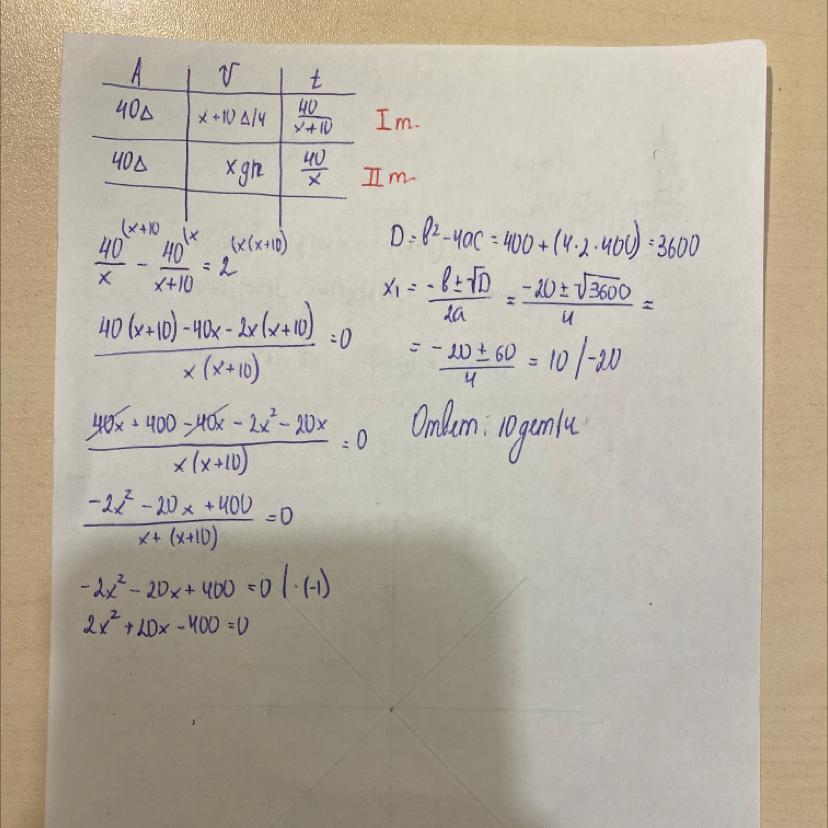 A | V | t
40Δ | x+10 Δ/ч | 40/(x+10) I т.
40Δ | x дет | 40/x II т
40/x (x+10 - 40/(x+10) (x = 2 (x(x+10)
(40(x+10)-40x-2x(x+10))/(x(x+10)) =0
(40x+400-40x-2x²-20x)/(x(x+10)) =0
(-2x²-20x+400)/(x+(x+10)) =0
-2x²-20x+400=0 |·(-1)
2x²+20x-400=0
D=b²-4ac=400+(4·2·400)=3600
x₁=(-b±√D)/2a = (-20±√3600)/4 =
= (-20±60)/4 = 10/-20
Ответ: 10дет/ч